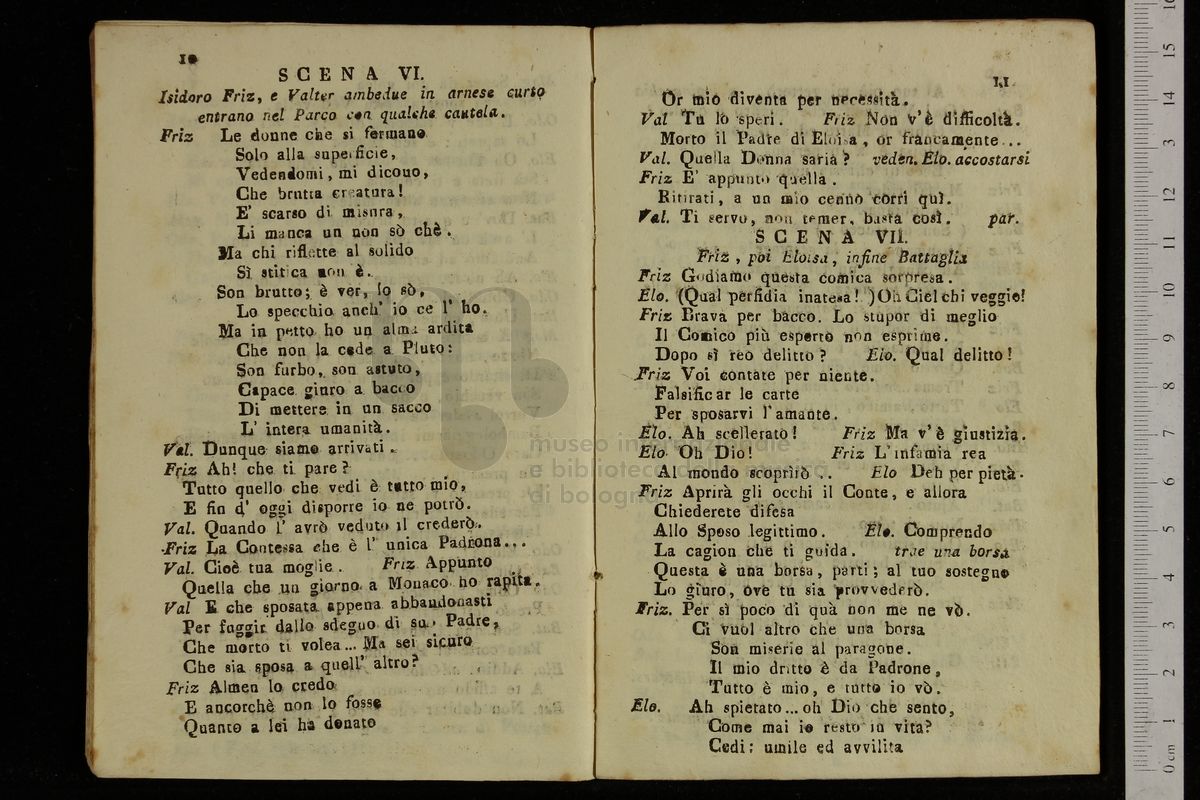 10
SCENA VI.
Isidoro Friz, e Valter ambedue in arnese curto
entrano nel Parco con qualche cautela.
Friz Le donne che si fermano
Solo alla superficie,
Vedendomi, mi dicono,
Che brutta creatura!
E' scarso di misura,
Li manca un non sò chè.
Ma chi riflette al solido
Sì stitica non è.
Son brutto; è ver, lo sò,
Lo specchio anch' io ce l' ho.
Ma in petto ho un alma ardita
Che non la cede a Pluto:
Son furbo, son astuto,
Capace giuro a bacco
Di mettere in un sacco
L' intera umanità.
Val. Dunque siamo arrivati.
Friz Ah! che ti pare?
Tutto quello che vedi è tutto mio,
E fin d' oggi disporre io ne potrò.
Val. Quando l' avrò veduto il crederò.
Friz La Contessa che è l' unica Padrona...
Val. Cioè tua moglie. Friz Appunto
Quella che un giorno a Monaco ho rapita.
Val E che sposata appena abbandonasti
Per fuggir dallo sdegno di suo Padre,
Che morto ti volea... Ma sei sicuro
Che sia sposa a quell' altro?
Friz Almen lo credo
E ancorchè non lo fosse
Quanto a lei ha donato
11
Or mio diventa per necessità.
Val Tu lo speri. Friz Non v' è difficoltà.
Morto il Padre di Eloisa, or francamente...
Val. Quella Donna saria? veden. Elo. accostarsi
Friz E' appunto quella.
Ritirati, a un mio cenno corri quì.
Val. Ti servo, non temer, basta così. par.
SCENA VII.
Friz, poi Eloisa, infine Battaglia
Friz Godiamo questa comica sorpresa.
Elo. (Qual perfidia inatesa!) Oh Ciel chi veggio!
Friz Brava per bacco. Lo stupor di meglio
Il Comico più esperto non esprime.
Dopo sì reo delitto? Elo. Qual delitto!
Friz Voi contate per niente.
Falsificar le carte
Per sposarvi l'amante.
Elo. Ah scellerato! Friz Ma v' è giustizia.
Elo. Oh Dio! Friz L' infamia rea
Al mondo scoprirò .. Elo Deh per pietà.
Friz Aprirà gli occhi il Conte, e allora
Chiederete difesa
Allo Sposo legittimo. Elo. Comprendo
La cagion che ti guida. trae una borsa
Questa è una borsa, parti; al tuo sostegno
Lo giuro, ove tu sia provvederò.
Friz. Per sì poco di quà non me ne vò.
Ci vuol altro che una borsa
Son miserie al paragone.
Il mio dritto è da Padrone,
Tutto è mio, e tutto io vò.
Elo. Ah spietato... oh Dio che sento,
Come mai io resto in vita?
Cedi: umile ed avvilita